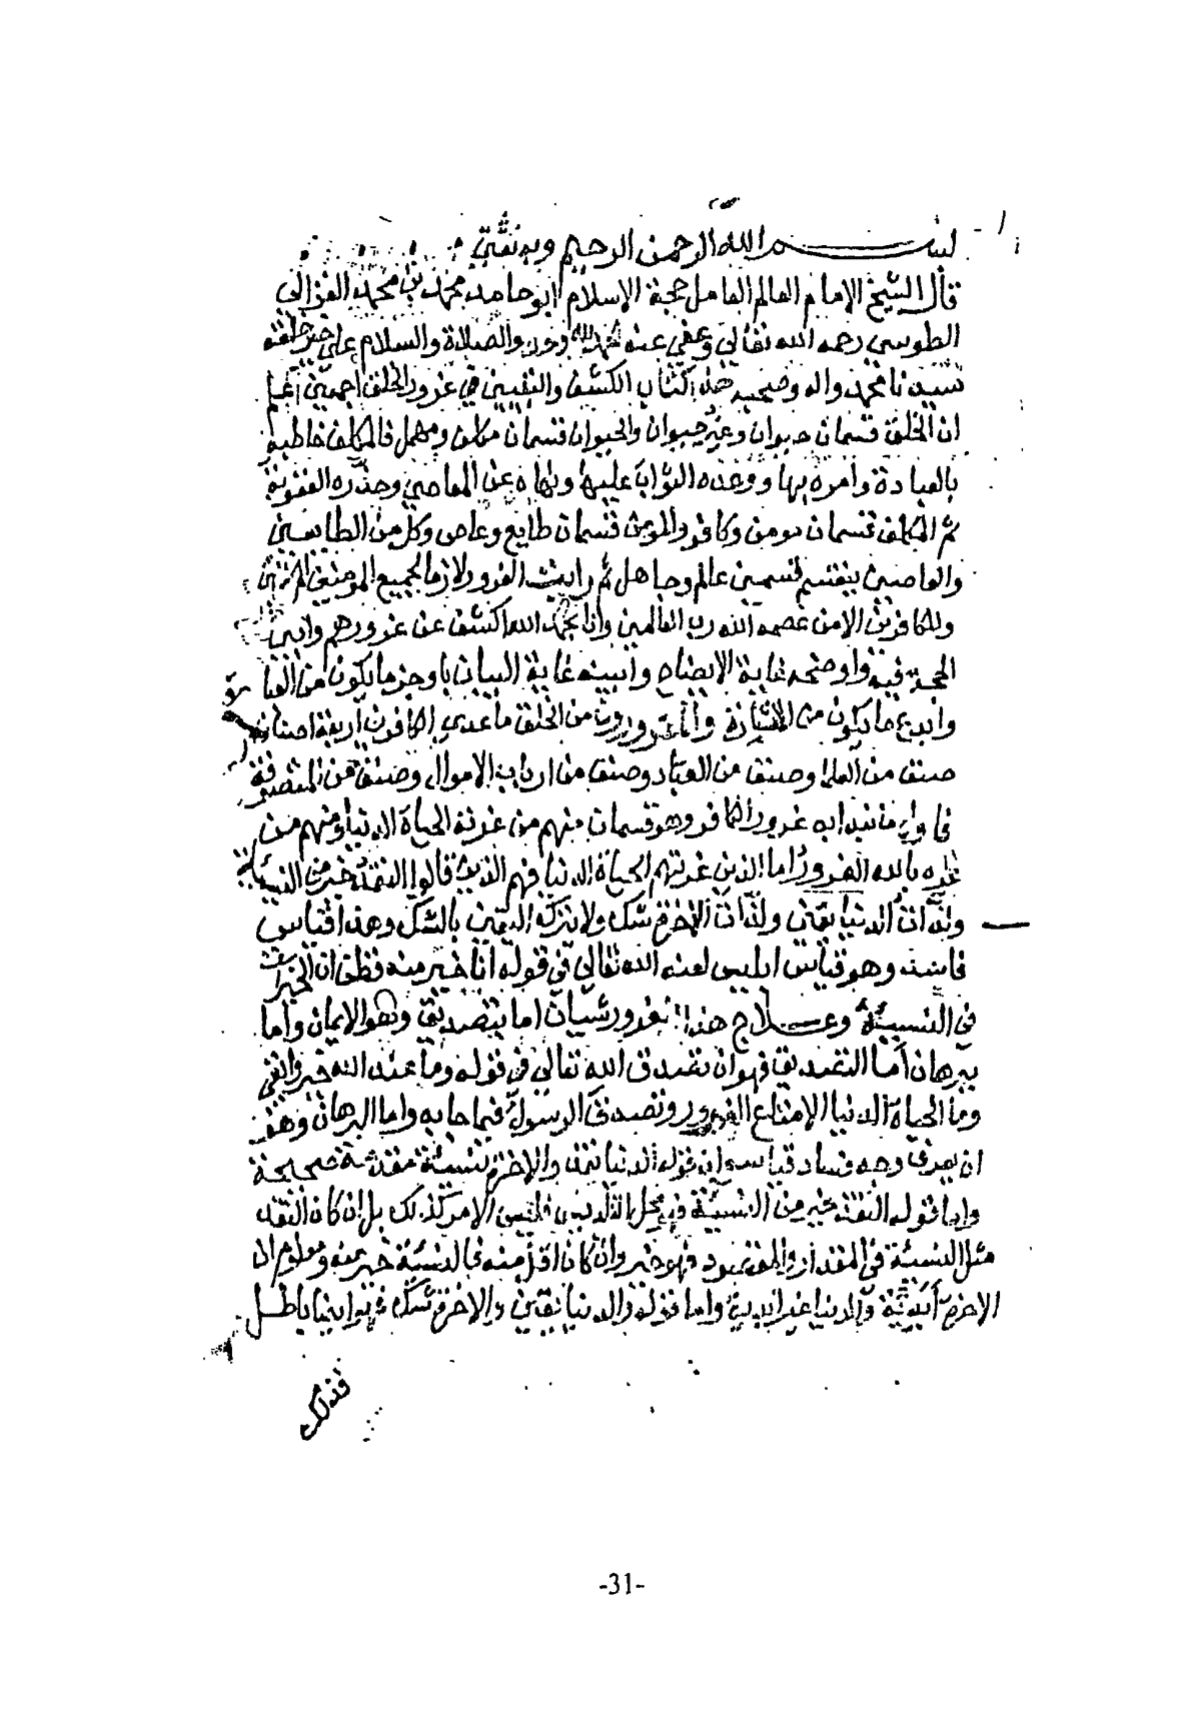 بسم الله الرحمن الرحيم وبه ثقتي
قال الشيخ الامام العالم العامل حجة الاسلام ابو حامد محمد بن محمد الغزالي
الطوسي رحمه الله تعالى وعفى عنه الحمد لله وحده والصلاة والسلام على خير خلقه
سيدنا محمد واله وصحبه هذا كتاب الكشف والتبيين في غرور الخلق اجمعين اعلم
ان الخلق قسمان حيوان وغير حيوان والحيوان قسمان مكلف ومهمل فالمكلف خاطبه
بالعبادة وامره بها ووعده الثواب عليها ونهاه عن المعاصي وحذره العقوبة
ثم المكلف قسمان مومن وكافر والمومن قسمان طايع وعاص وكل من الطايعين
والعاصين ينقسم قسمين عالم وجاهل ثم رايت الغرور لازما لجميع المومنين
والكافرين الا من عصمه الله رب العالمين وانا بحمد الله اكشف عن غرورهم وابين
الحجة فيه واوضحه غاية الايضاح وابينه غاية البيان باوجز ما يكون من العبارة
وابدع ما يكون من الاشارة والمغرورون من الخلق ما عدى الكافرين اربعة اصناف
صنف من العلما وصنف من العباد وصنف من ارباب الاموال وصنف من المتصوفة
فاول ما نبدا به غرور الكافر وهو قسمان منهم من غرته الحياة الدنيا ومنهم من
غره بالله الغرور اما الذين غرتهم الحياة الدنيا فهم الذين قالوا النقد خير من النسيئة
ولذات الدنيا يقين ولذات الاخرة شك ولا يترك اليقين بالشك وهذا قياس
فاسد وهو قياس ابليس لعنه الله تعالى في قوله انا خير منه فظن ان الخيرات
في النسيئة وعلاج هذا الغرور شيان اما بتصديق وهو الايمان واما
ببرهان اما التصديق فهو ان تصدق الله تعالى في قوله وما عند الله خير وابقى
وما الحياة الدنيا الا متاع الغرور وتصدق الرسول فيما جا به واما البرهان وهو
ان يعرف وجه فساد قياسه ان قوله الدنيا نقد والاخرة نسيئة مقدمة صحيحة
واما قوله النقد خير من النسيئة فهو محل التلبيس فليس الامر كذلك بل ان كان النقد
مثل النسيئة في المقدار والمقصود فهو خير وان كان اقل منه فالنسيئة خير منه ومعلوم ان
الاخرة ابدية والدنيا غير ابدية واما قوله والدنيا يقين والاخرة شك فهو ايضا باطل
فذلك
-31-